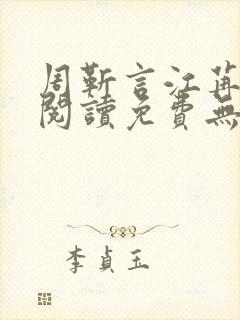 周靳言江苒
閱讀免費無
李貞玉